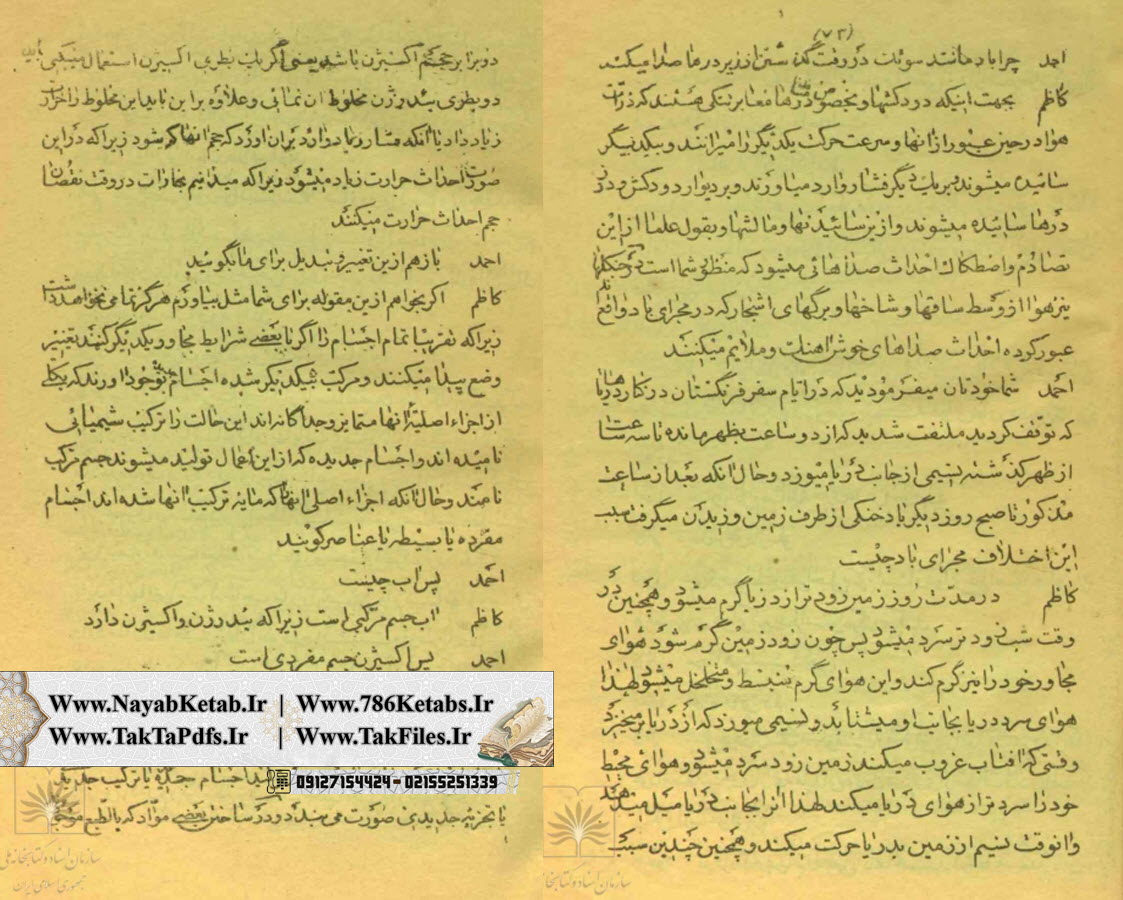 (۷۳)
احمد چرا باد مانند سوت در وقت گذشتن از زیر درها صدا میکند
کاظم بجهت اینکه دودکشها و بخصوص درها معابر تنگی هستند که ذرات
هوا در حین عبور از انها و سرعت حرکت یکدیگر را میرانند و بیکدیگر
سائیده میشوند و بر یکدیگر فشار وارد میاورند و بر دیوار دودکش و در
درها سائیده میشوند و ازین سائیدنها و مالشها و بقول علما ازین
تصادم و اصطکاک احداث صداهائی میشود که منظور شما است در جنگلها
نیز هوا از وسط ساقها و شاخها و برگهای اشجار که در مجرای باد واقعند
عبور کرده احداث صداهای خوش اهنک و ملایم میکنند
احمد شما خودتان میفرمودید که در ایام سفر فرنگستان در کنار دریاها
که توقف کردید ملتفت شدید که از دو ساعت بظهر مانده تا سه ساعت
از ظهر گذشته نسیمی از جانب دریا میوزد و حال انکه بعد از ساعت
مذکور تا صبح روز دیگر باد خنکی از طرف زمین وزیدن میگرفت سبب
این اختلاف مجرای باد چیست
کاظم در مدت روز زمین زودتر از دریا گرم میشود و همچنین در
وقت شب زودتر سرد میشود پس چون زود زمین گرم شود هوای
مجاور خود را نیز گرم کند و این هوای گرم منبسط و متخلخل میشود لهذا
هوای سرد دریا بجانب او میشتابد و نسیمی میوزد که از دریا میخیزد
وقتی که افتاب غروب میکند زمین زود سرد میشود و هوای محیط
خود را سردتر از هوای دریا میکند لهذا انرا بجانب دریا میل میدهد
و انوقت نسیم از زمین بدریا حرکت میکند و همچنین چندین سبب
دو برابر حجم اکسیژن باشد یعنی اگر یک بطری اکسیژن استعمال میکنی
دو بطری ئیدرژن مخلوط ان نمائی و علاوه بر این باید این مخلوط را حرارت
زیاد داد یا انکه فشار زیاد وارد بران اورد که حجم انها کم شود زیرا که در این
صورت احداث حرارت زیاد میشود زیرا که میدانیم بخارات در وقت نقصان
حجم احداث حرارت میکنند
احمد باز هم از این تغییر و تبدیل برای ما بگوئید
کاظم اگر بخواهم ازین مقوله برای شما مثل بیاورم هرگز تمامی نخواهد داشت
زیرا که تقریبا تمام اجسام را اگر با بعضی شرایط مجاور یکدیگر کنند تغییر
وضع پیدا میکنند و مرکب بیکدیگر شده اجسام بوجود اورند که بکلی
از اجزاء اصلیه انها متمایز و جداگانه اند این حالت را ترکیب شیمیائی
نامیده اند و اجسام جدیده که از این اعمال تولید میشوند جسم مرکب
نامند و حال انکه اجزاء اصلی انها که مایه ترکیب انها شده اند اجسام
مفرده یا بسیطه یا عناصر گویند
احمد پس اب چیست
کاظم اب جسم مرکبی است زیرا که ئیدرژن و اکسیژن دارد
احمد پس اکسیژن جسم مفردی است
www.NayabKetab.Ir | www.786Ketabs.Ir
www.TakTaPdfs.Ir | www.TakFiles.Ir
09127154424 - 02155251339
اجسام یا ترکیب جدیدی
یا تجزیه جدیدی صورت می بندد و در ساختن بعضی مواد که بالطبع
سازمان اسناد و کتابخانه ملی
جمهوری اسلامی ایران
سازمان اسناد و کتابخانه